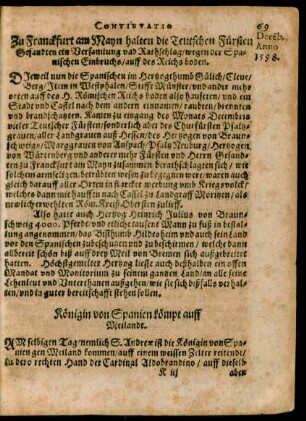 CONTINVATIO
69
Zu Franckfurt am Mayn halten die Teutschen Fürsten
Gesandten ein Versamlung vnd Rathschlag/wegen der Spa-
nischen Einbruchs/auff des Reichs boden.
Doceb.
Anno
1598.
DJeweil nun die Spanischen im Hertzogthumb Gülich/Cleve/
Berg/Item in Westphalen/Stifft Münster/vnd ander mehr
orten auff des H. Römischen Reichs boden also hauseten/vnd ein
Stadt vnd Castel nach dem andern einnamen/raubten/brenten
vnd brandschatzten. Kamen zu eingang des Monats Decembris
vieler Teutschen Fürsten/sonderlich aber des Churfürsten Pfaltz-
graven/aller Landgraven auß Hessen/des Hertzogen von Braun-
schwig/Marggraven von Anspach/Pfaltz Newburg/Hertzogen
von Würtenberg vnd anderer mehr Fürsten vnd Herrn Gesand-
ten zu Franckfurt am Mayn zusammen/berathschlagten sich/ wie
solchem armseligen/betrübten wesen zubegegnen were/waren auch
gleich darauff aller Orten in starcker werbung vmb Kriegsvolck/
welches dann mit hauffen nach Cassel zu Landgraff Moritzen/als
newlich erwehlten Röm. Kreiß-Obersten zulieff.
Also hatte auch Hertzog Heinrich Julius von Braun-
schweig 4000. Pferdt/vnd etlich tausent Mann zu fuß in bestal-
lung angenommen/das Bisthumb Hildesheim vnd auch sein Land
vor den Spanischen zubeschützen vnd zubeschirmen/welche dann
allbereit schon biß auff drey Meil von Bremen sich außgebreitet
hatten. Höchstgemelter Hertzog lieste auch deßhalben ein offen
Mandat vnd Monitorium zu seinem gantzen Land/an alle seine
Lehenleut vnd Vnterthanen außgehen/wie sie sich dißfalls verhal-
ten/vnd in guter bereitschafft stehen sollen.
Königin von Spanien kömpt auff
Meilandt.
AM selbigen Tag/nemlich S. Andreæ ist die Königin von Spa-
nien gen Meiland kommen/auff einem weissen Zelter reitend/
zu dero rechten Hand der Cardinal Aldobrandino/ auff dieselb
K iij
aber